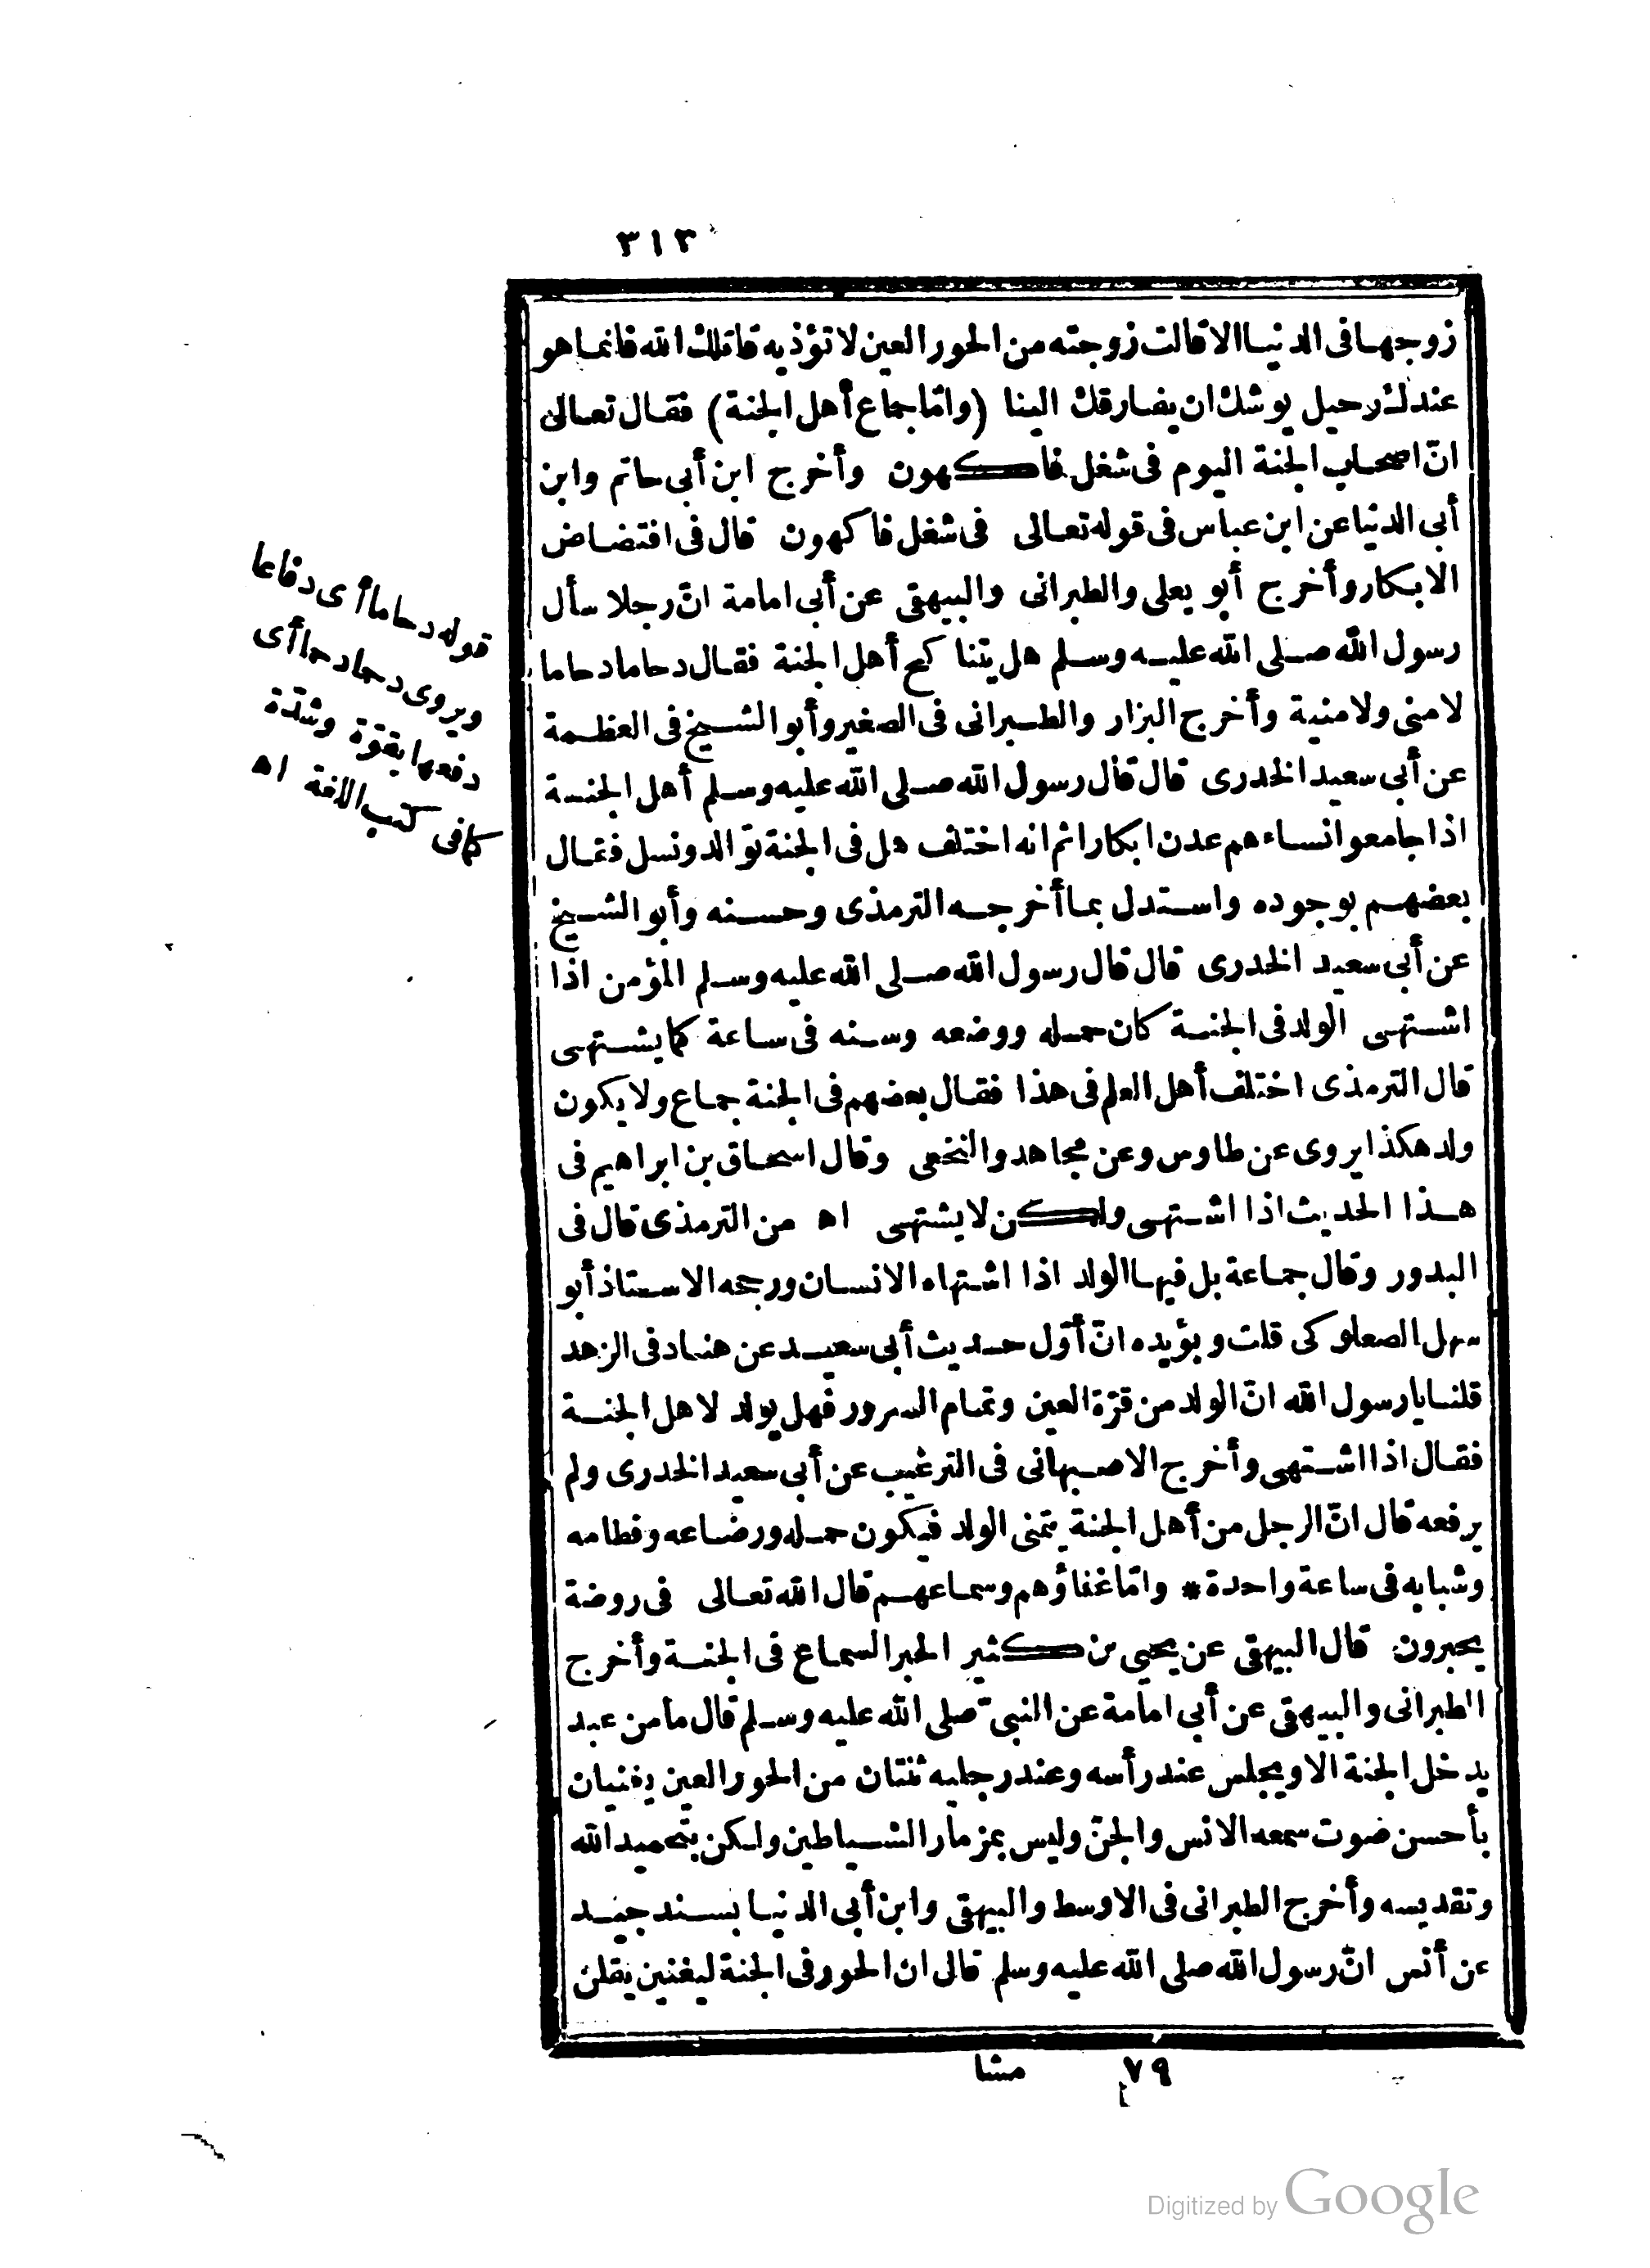 ٣١٣
زوجها فى الدنيا الا قالت زوجته من الحور العين لا تؤذيه قاتلك الله فانما هو
عندك رحيل يوشك ان يفارقك الينا (وامّا جماع أهل الجنة) فقال تعالى
انّ اصحاب الجنة اليوم فى شغل فاكهون وأخرج ابن أبى حاتم وابن
أبى الدنيا عن ابن عباس فى قوله تعالى فى شغل فاكهون قال فى افتضاض
الابكار وأخرج أبو يعلى والطبرانى والبيهقى عن أبى امامة انّ رجلا سأل
رسول الله صلى الله عليه وسلم هل يتناكح أهل الجنة فقال دحاما دحاما
لا منى ولا منية وأخرج البزار والطبرانى فى الصغير وأبو الشيخ فى العظمة
عن أبى سعيد الخدرى قال قال رسول الله صلى الله عليه وسلم أهل الجنة
اذا جامعوا نساءهم عدن ابكارا ثم انه اختلف هل فى الجنة توالد ونسل فقال
بعضهم بوجوده واستدل بما أخرجه الترمذى وحسنه وأبو الشيخ
عن أبى سعيد الخدرى قال قال رسول الله صلى الله عليه وسلم المؤمن اذا
اشتهى الولد فى الجنة كان حمله ووضعه وسنه فى ساعة كما يشتهى
قال الترمذى اختلف أهل العلم فى هذا فقال بعضهم فى الجنة جماع ولا يكون
ولد هكذا يروى عن طاوس وعن مجاهد والنخعى وقال اسحاق بن ابراهيم فى
هذا الحديث اذا اشتهى ولكن لا يشتهى اه من الترمذى قال فى
البدور وقال جماعة بل فيها الولد اذا اشتهاه الانسان ورجحه الاستاذ أبو
سهل الصعلوكى قلت ويؤيده انّ أوّل حديث أبى سعيد عن هناد فى الزهد
قلنا يا رسول الله انّ الولد من قرّة العين وتمام السرور فهل يولد لاهل الجنة
فقال اذا اشتهى وأخرج الاصبهانى فى الترغيب عن أبى سعيد الخدرى ولم
يرفعه قال انّ الرجل من أهل الجنة يتمنى الولد فيكون حمله ورضاعه وفطامه
وشبابه فى ساعة واحدة * وامّا غناؤهم وسماعهم قال الله تعالى فى روضة
يحبرون قال البيهقى عن يحيى بن كثير الحبر السماع فى الجنة وأخرج
الطبرانى والبيهقى عن أبى امامة عن النبىّ صلى الله عليه وسلم قال ما من عبد
يدخل الجنة الا ويجلس عند رأسه وعند رجليه ثنتان من الحور العين يغنيان
بأحسن صوت سمعه الانس والجنّ وليس بمزمار الشياطين ولكن بتحميد الله
وتقديسه وأخرج الطبرانى فى الاوسط والبيهقى وابن أبى الدنيا بسند جيد
عن أنس انّ رسول الله صلى الله عليه وسلم قال ان الحور فى الجنة ليغنين يقلن
قوله دحاما أى دفاعا
ويروى دحما دحما أى
دفعها بقوّة وشدّة
كما فى كتب اللغة اه
٧٩ مشا
Digitized by Google